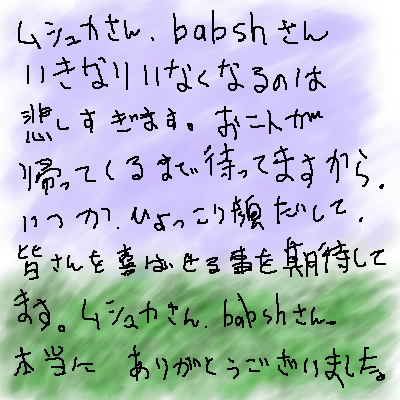 ムシュカさん、babshさん
いきなりいなくなるのは
悲しすぎます。お二人が
帰ってくるまで待ってますから。
いつか、ひょっこり顔だして、
皆さんを喜ばせる事を期待して
ます。ムシュカさん、babshさん
本当に ありがとうございました。